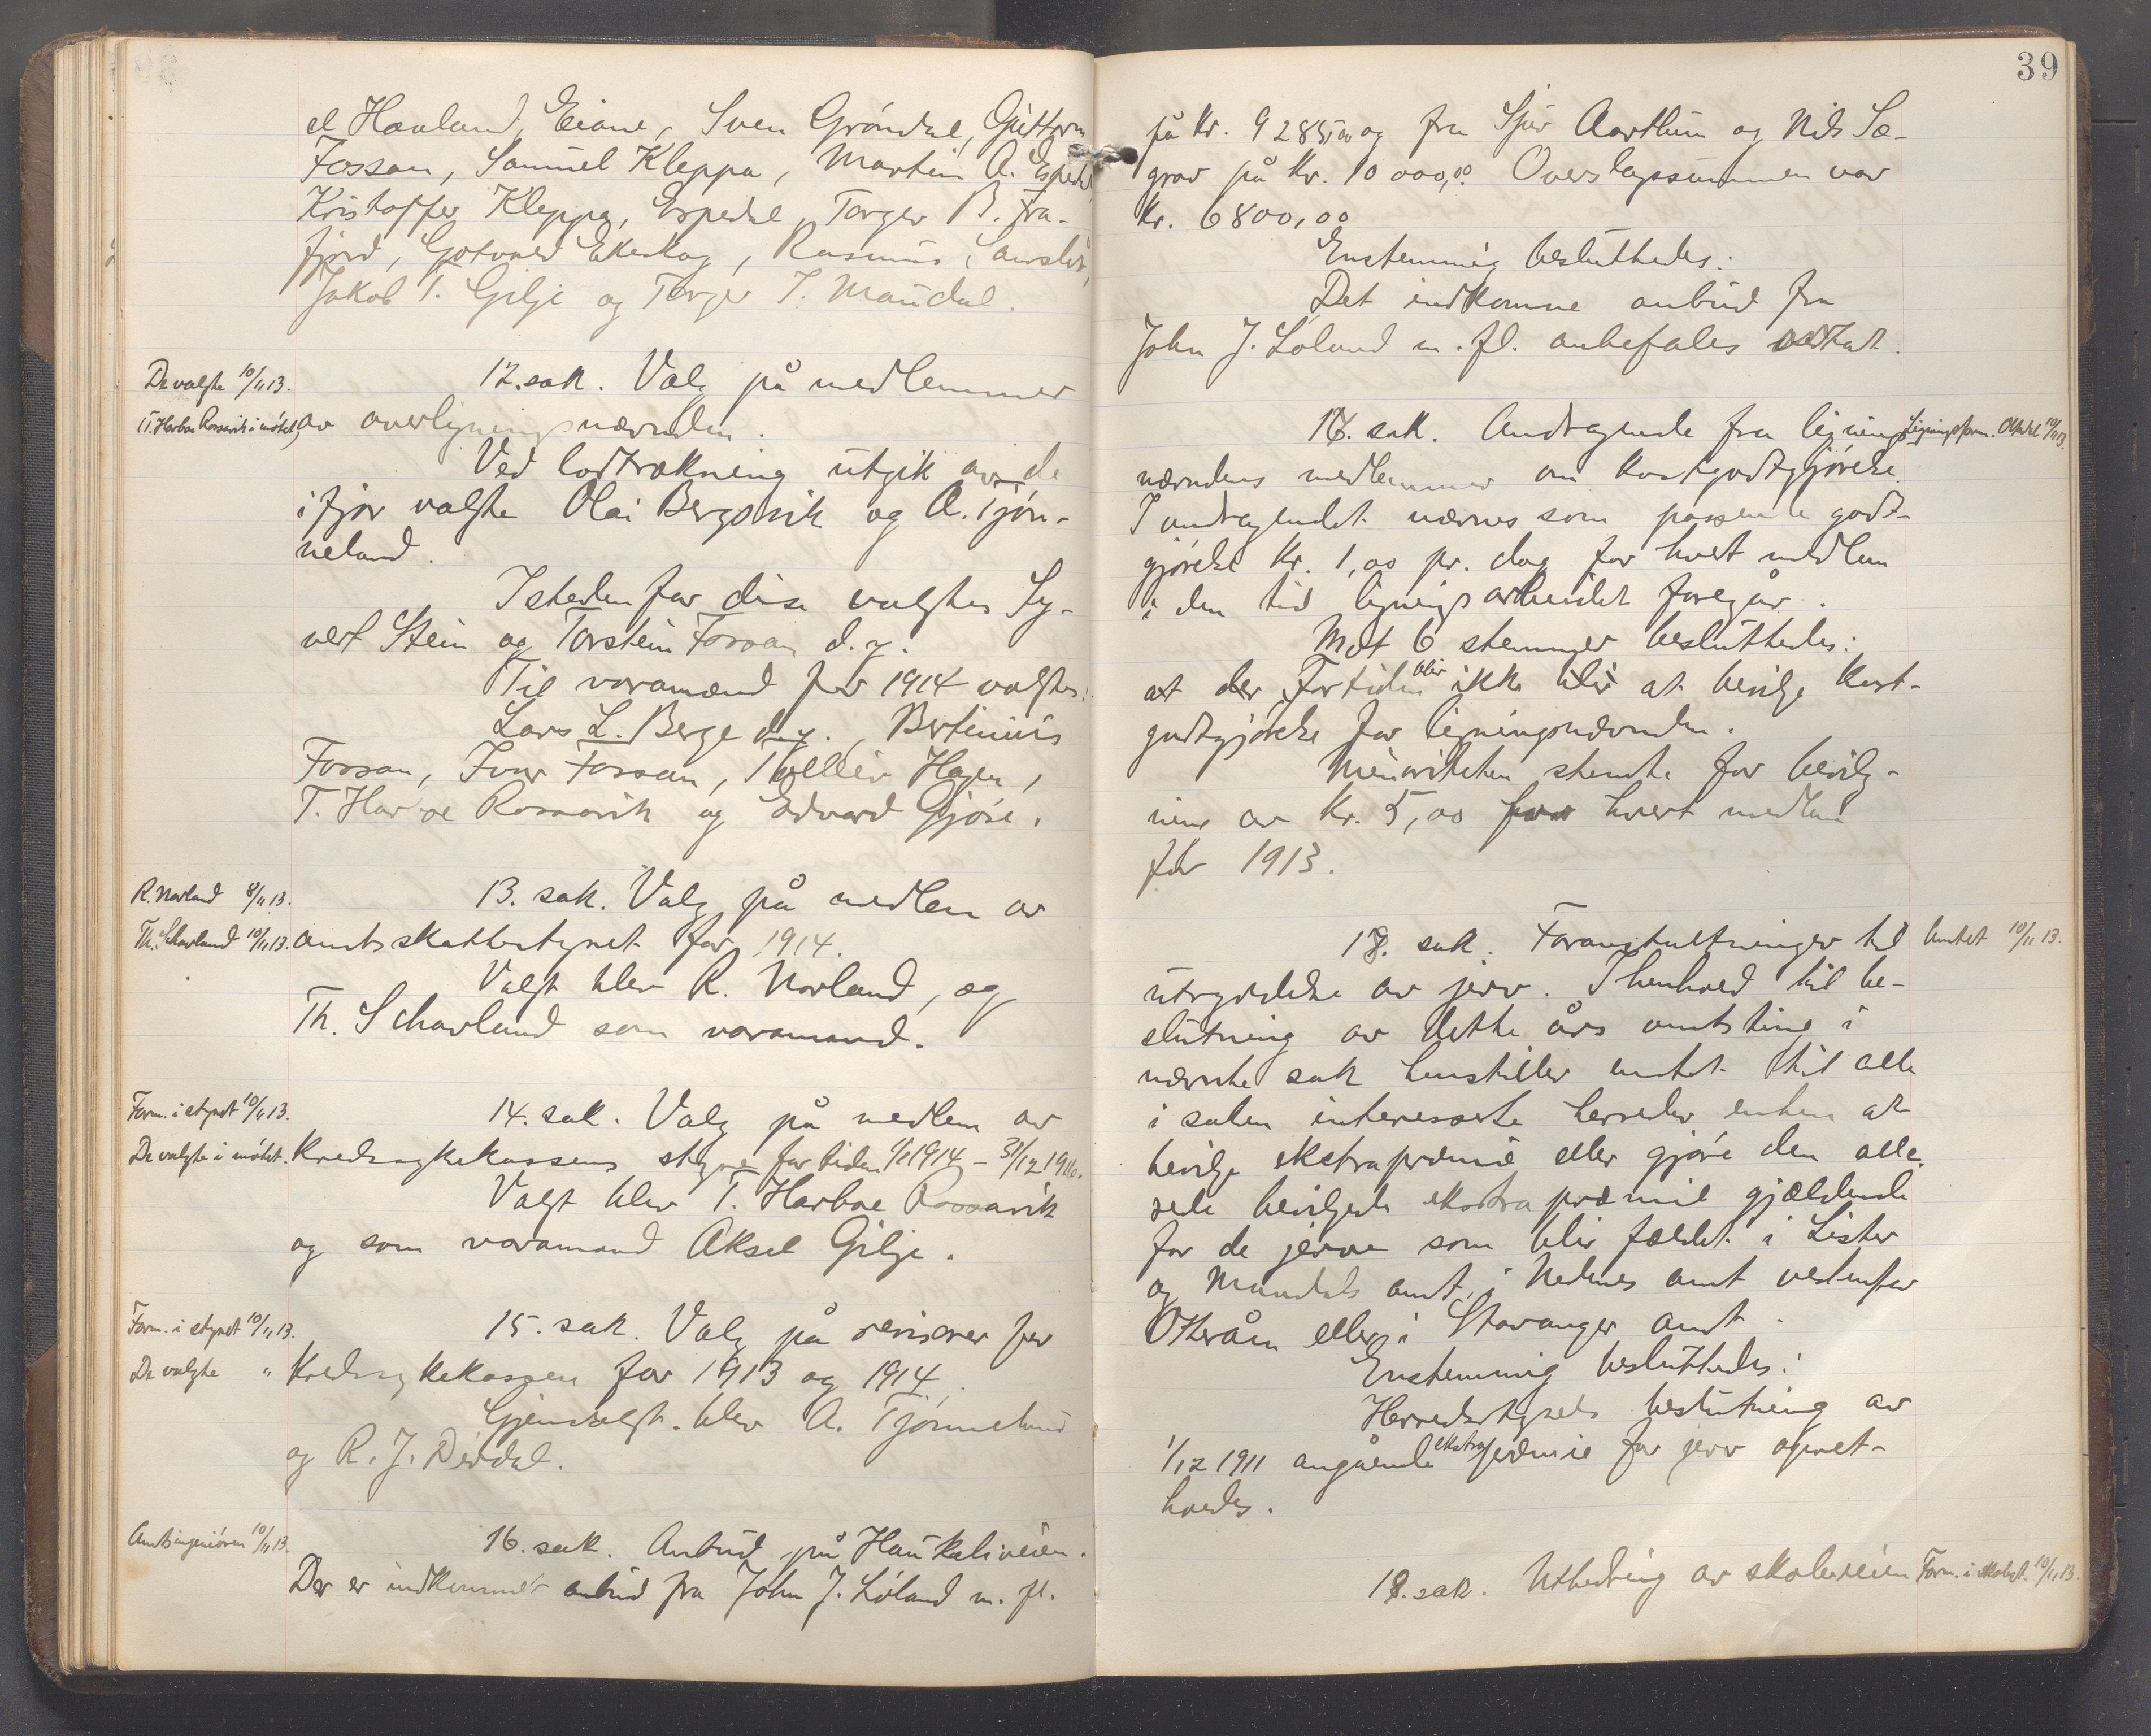 39
el Havland, Eiane, Sven Gröndal, Guttorm
Fossan, Samuel Kleppa, Martin A. Espedal,
Kristoffer Kleppa, Espedal, Torger B. Fra-
fjord, Gotvard Ekeskog, Rasmus
Jakob T. Gilje og Torger T. Maudal.
De valgte 10/11 13.
(T. Harboe Rossavik i mötet)
12. sak. Valg på medlemmer
av overligningsnævnden.
Ved lodtrækning utgik av de
i fjor valgte Olai Bergsvik og A. Tjön-
neland.
Isteden for disse valgtes Sy-
vert Stein og Torstein Fossan d.y.
Til varamænd for 1914 valgtes:
Lars L. Berge d.y., Bertinius
Fossan, Ivar Fossan, Tolleiv Hagen,
T. Harboe Rossavik og Edvard Gjöse.
R. Norland 8/11 13.
Th. Schavland 10/11 13.
13. sak. Valg på medlem av
amtsskattestyret for 1914.
Valgt blev R. Norland, og
Th. Schavland som varamand.
Form. i styret 10/11 13.
De valgte i mötet.
14. sak. Valg på medlem av
Kredssykekassens styre for tiden 1/1 1914 – 31/12 1916.
Valgt blev T. Harboe Rossavik
og som varamand Aksel Gilje.
Form. i styret 10/11 13.
De valgte "
15. sak. Valg på revisorer for
Kredssykekassen for 1913 og 1914.
Gjenvalgt blev A. Tjönneland
og R. J. Dirdal.
Amtsingeniören 10/11 13.
16. sak. Anbud på Haukaliveien.
Der er indkommet anbud fra John J. Löland m. fl.
på kr. 9285,00 og fra Sjur Aarthun og Nils Sæ-
grov på kr. 10 000,00. Overslagssummen var
kr. 6800,00
Enstemmig besluttedes:
Det indkomne anbud fra
John J. Löland m. fl. anbefales vedtat.
Ligningsform. Oltedal 10/11 13.
17. sak. Andragende fra lignings-
nævndens medlemmer om kostgodtgjörelse.
I andragendet nævnes som passende godt-
gjörelse kr. 1,00 pr. dag for hvert medlem
i den tid ligningsarbeidet foregår.
Mot 6 stemmer besluttedes:
at der for tiden blir ikke blir at bevilge kost-
godtgjörelse for ligningsnævnden.
Minoriteten stemte for bevilg-
ning av kr. 5,00 for hvert medlem
for 1913.
Amtet 10/11 13.
18. sak. Foranstaltninger til
utryddelse av jerv. I henhold til be-
slutning av dette års amtsting i
nævnte sak henstiller amtet til alle
i saken interesserte herreder enten at
bevilge ekstrapræmie eller gjöre den alle-
rede bevilgede ekstra præmie gjældende
for de jerver som blir fældet i Lister
og Mandals amt, i Nedenes amt vestenfor
Otteråen eller i Stavanger amt.
Enstemmig besluttedes:
Herredsstyrets beslutning av
1/12 1911 angående ekstrapræmie for jerv opret-
holdes.
Form. i skolest. 10/11 13.
19. sak. Utbedring av skoleveien